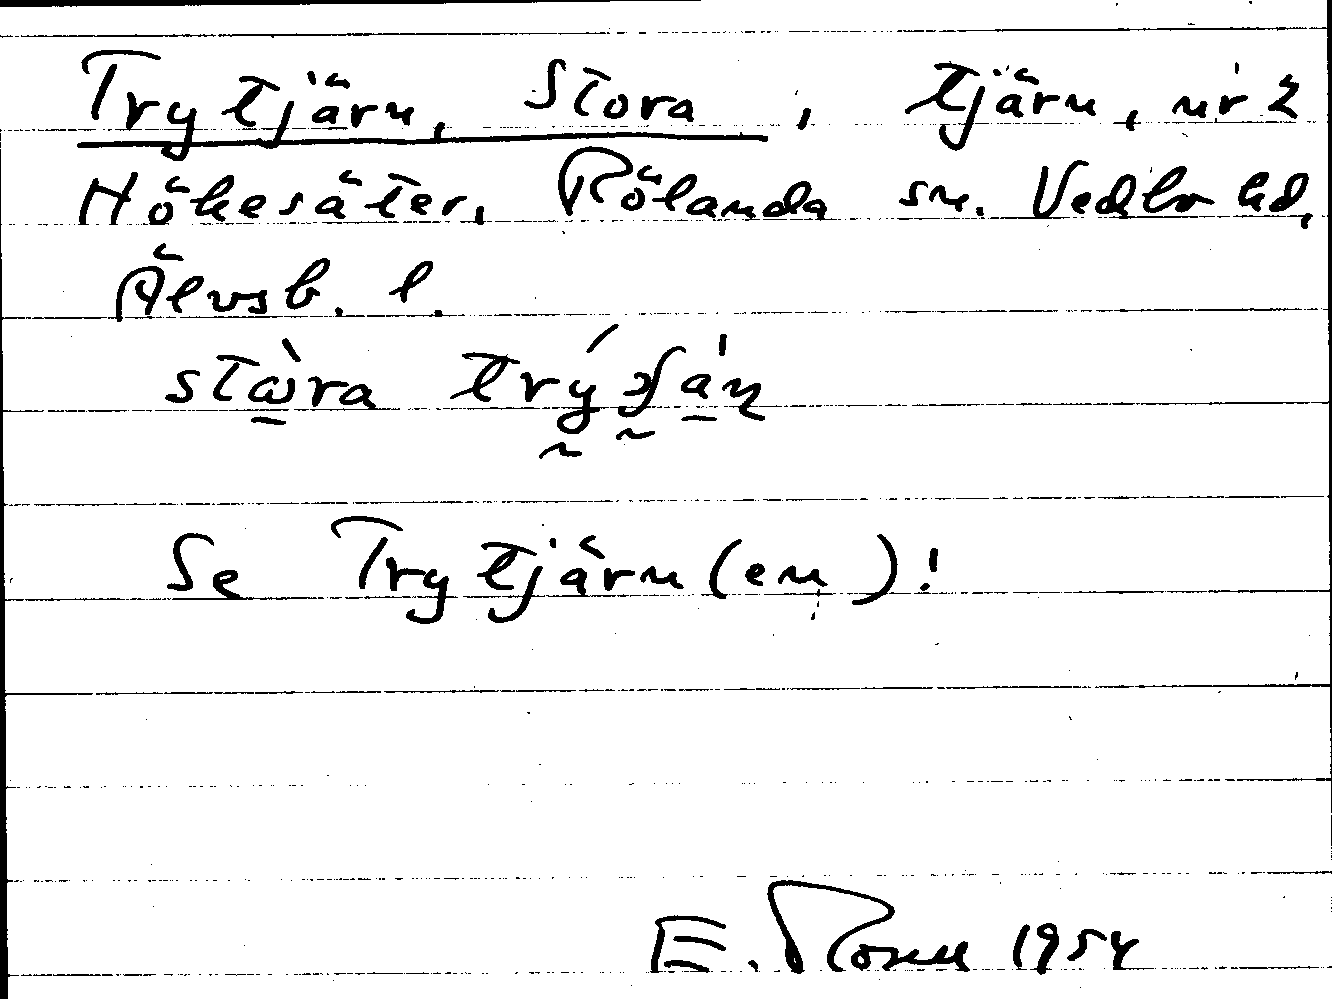 Trytjärn, Stora, tjärn, nr 2
Hökesäter, Rölanda sn. Vedbo hd,
Älvsb. l.
Se Trytjärn(en)!
E. Rosell 1954